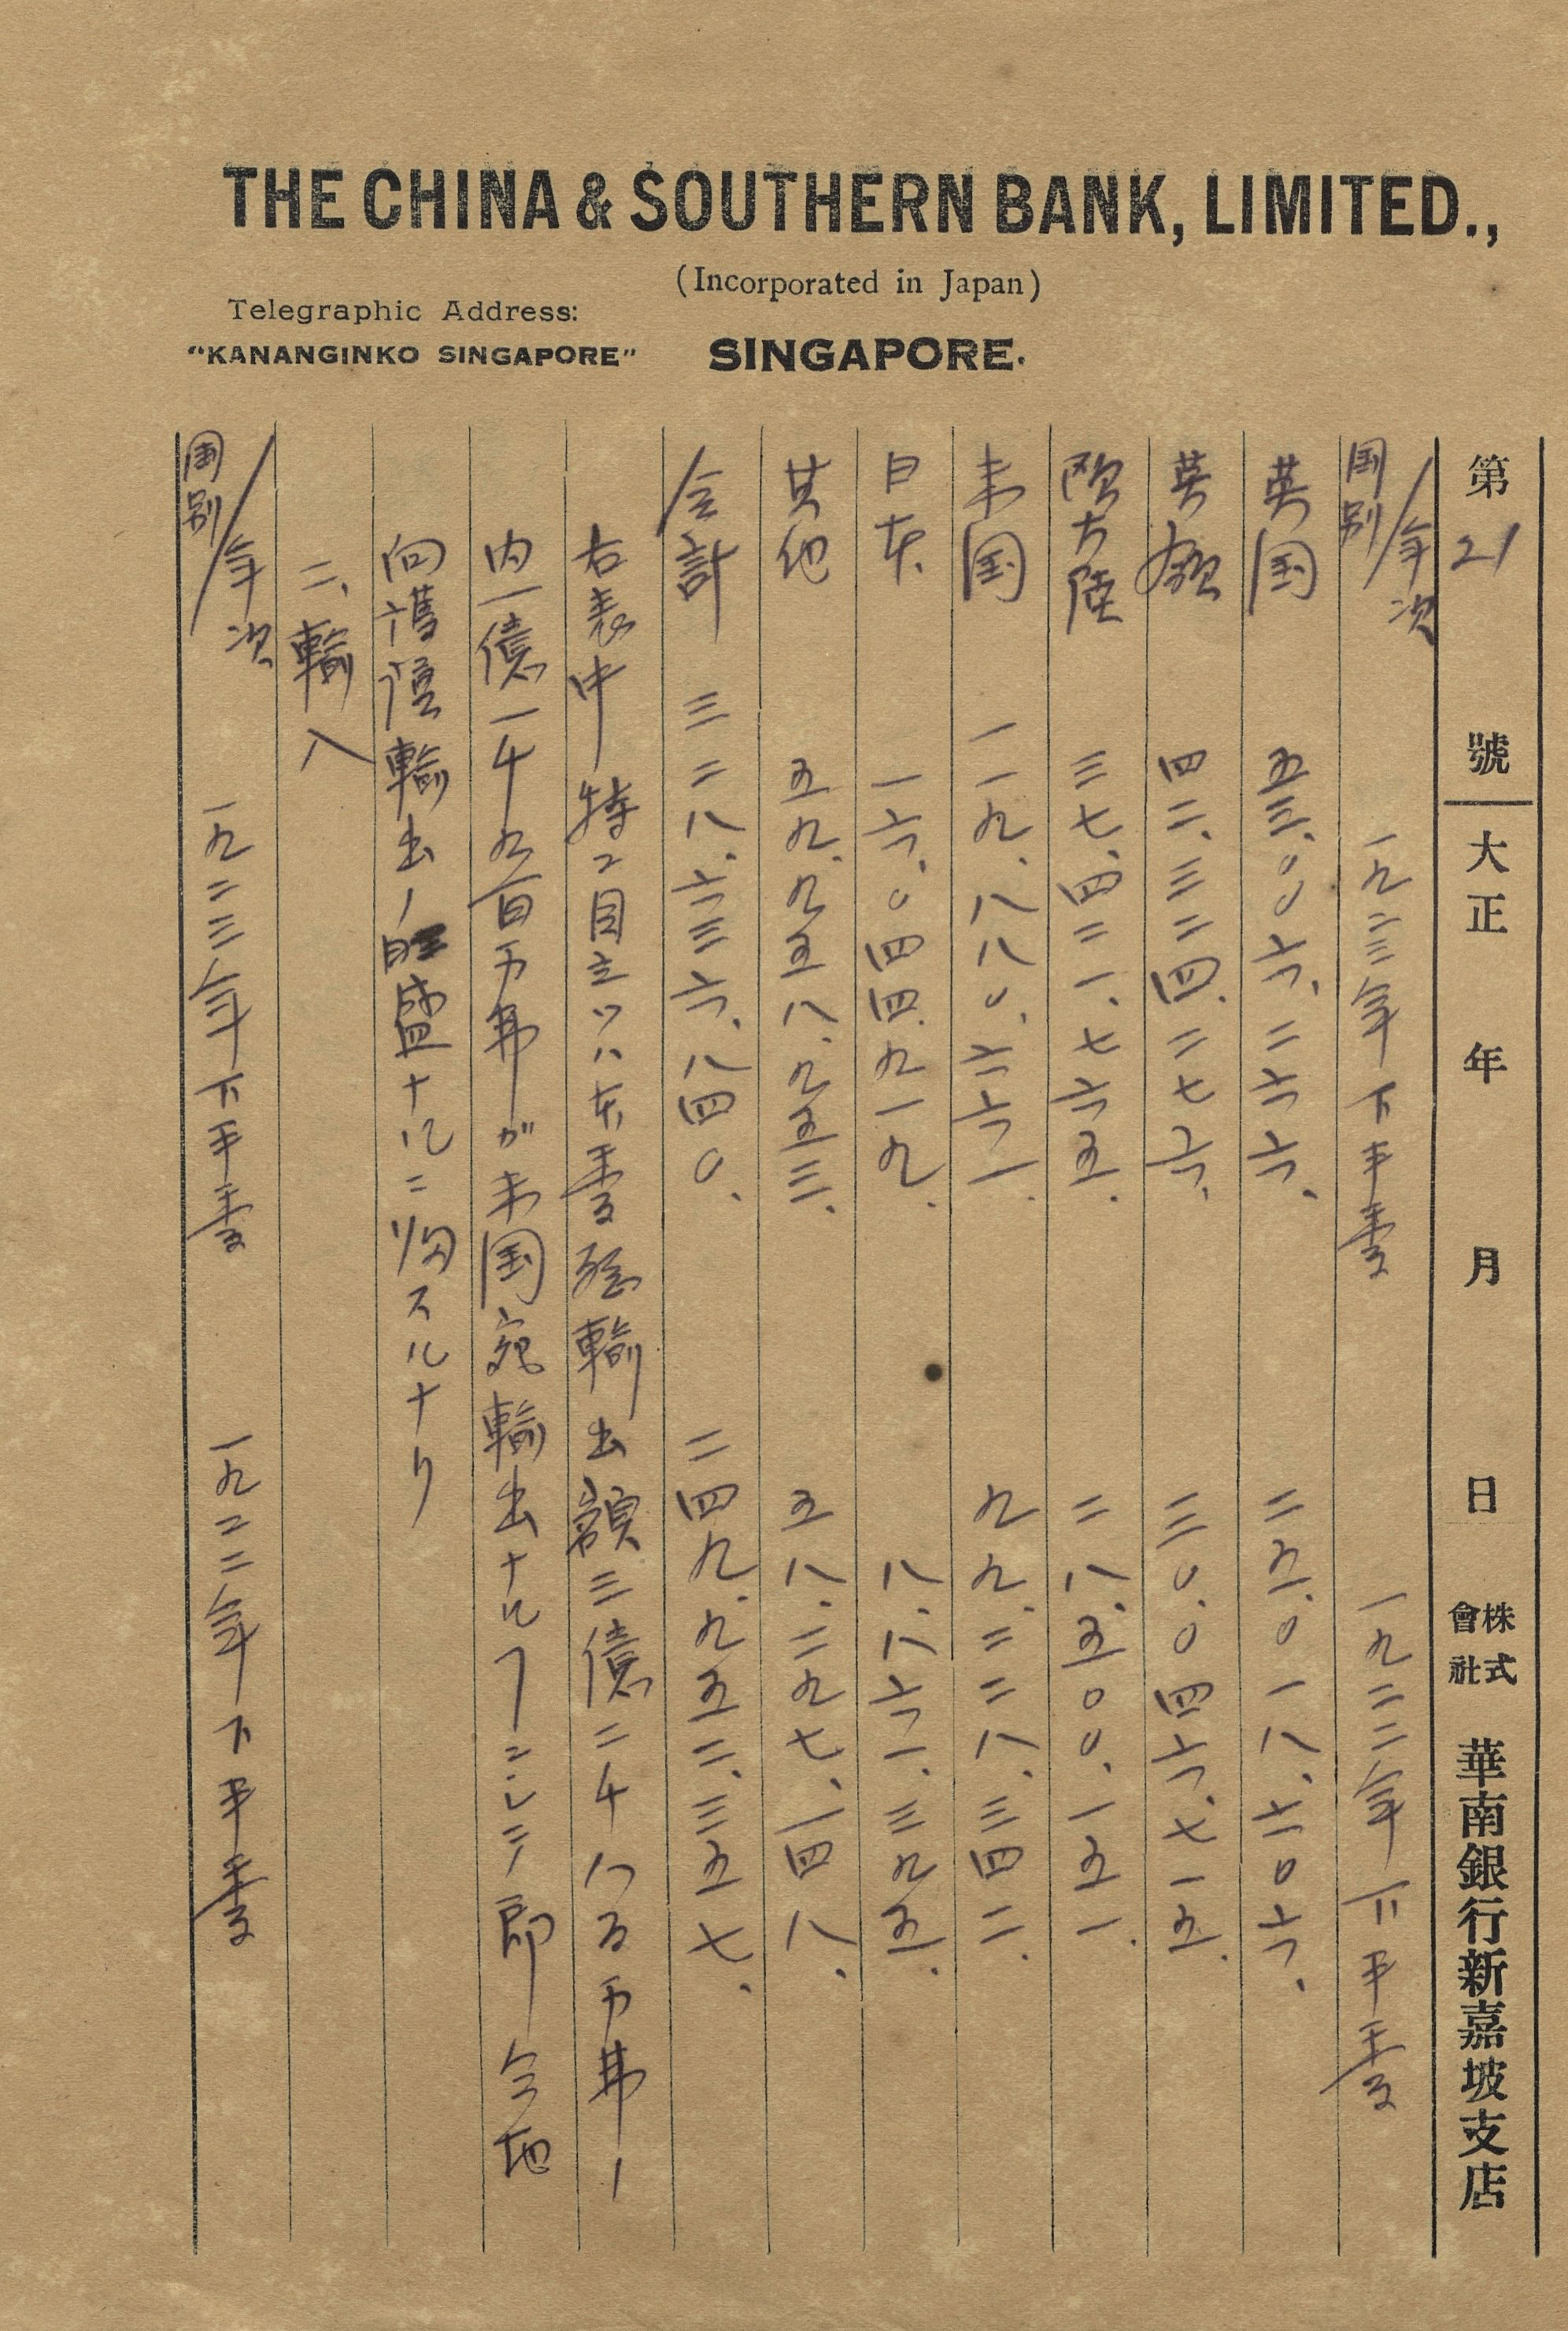 THE CHINA & SOUTHERN BANK, LIMITED.,
(Incorporated in Japan)
Telegraphic Address:
"KANANGINKO SINGAPORE"
SINGAPORE.
第21號 大正 年 月 日 株式會社 華南銀行新嘉坡支店
国別/年次 一九二三年下半季 一九二二年下半季
英国 五三、〇〇六、二六六、 二五、〇一八、六〇六、
英領 四二、三二四、二七六、 三〇、〇四六、七一五、
欧大陸 三七、四二一、七六五、 二八、五〇〇、一五一、
米国 一一九、八八〇、六六一、 九九、二二八、三四二、
日本 一六、〇四四、九一九、 八、八六一、三九五、
其他 五九、九五八、九五三、 五八、二九七、一四八、
合計 三二八、六三六、八四〇、 二四九、九五二、三五七、
右表中特ニ目立ツハ本季総輸出額三億二千八百万弗ノ
内一億一千九百万弗ガ米国宛輸出ナルヿニシテ即仝地
向護謨輸出ノ旺盛ナルニ帰スルナリ
二、輸入
国別/年次 一九二三年下半季 一九二二年下半季